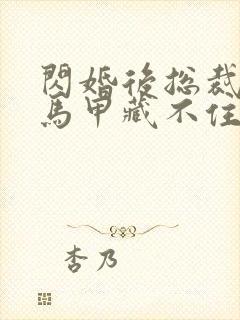 閃婚後総裁
馬甲藏不住
杏乃